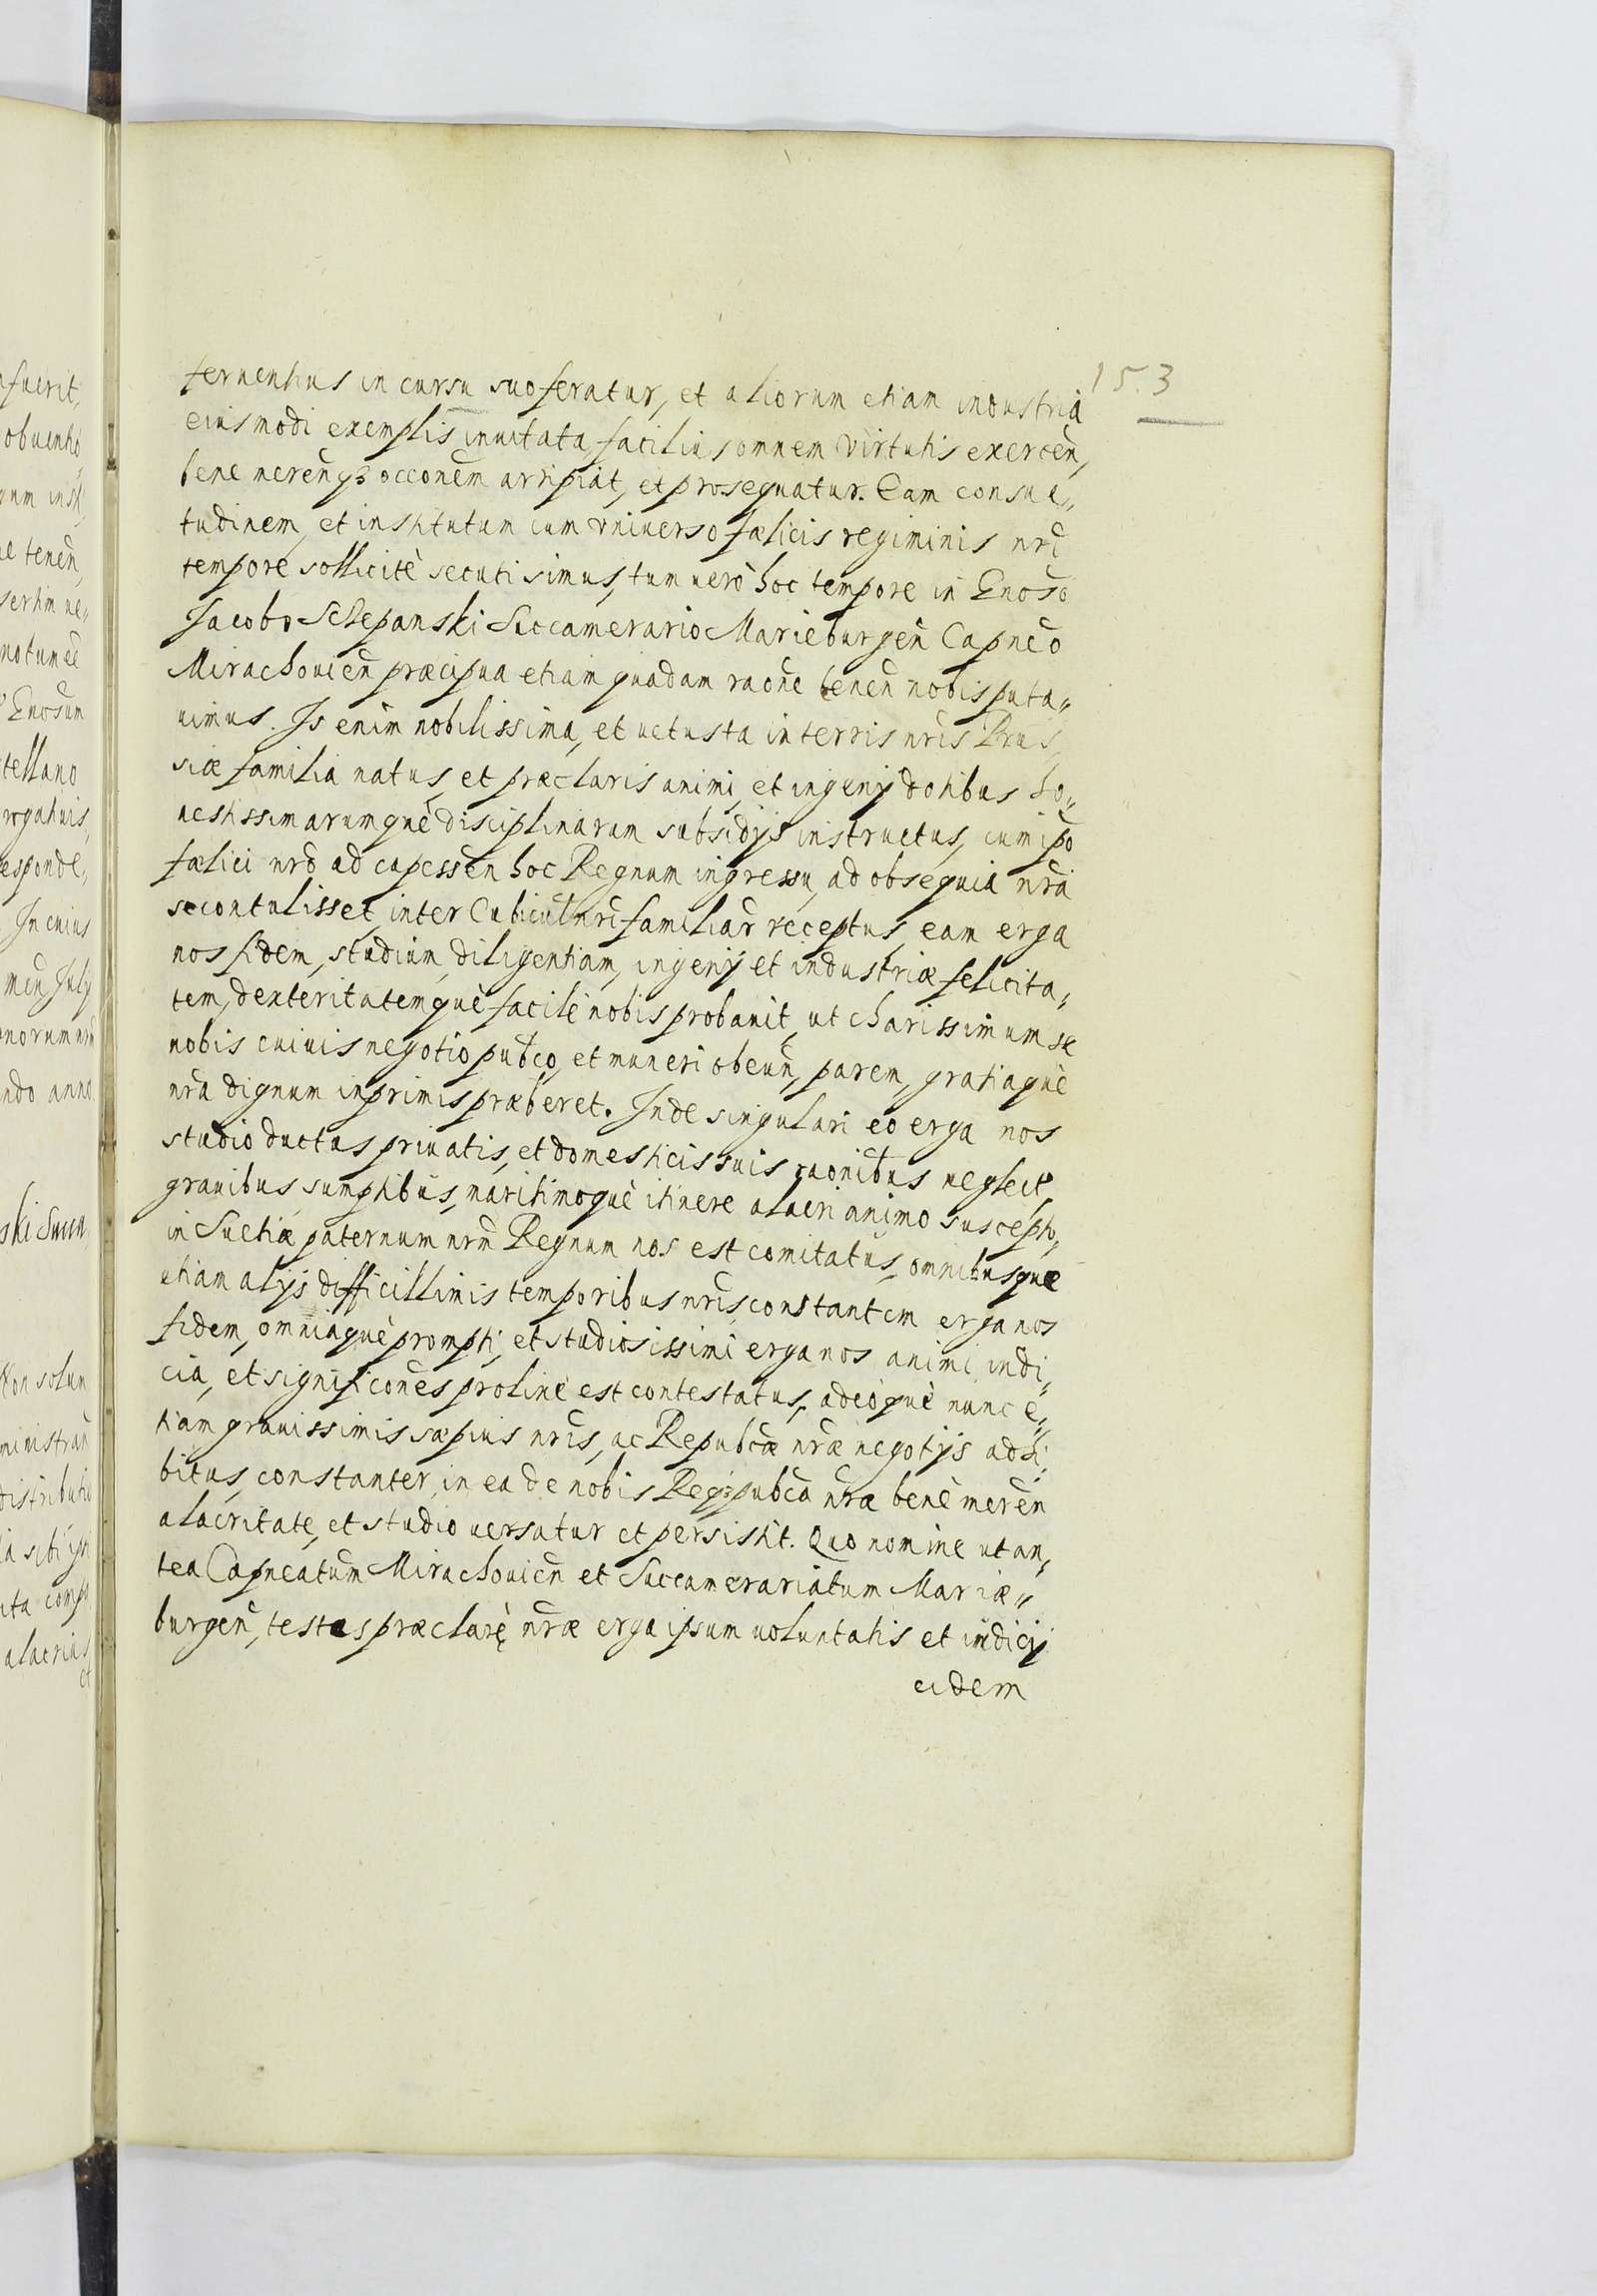 153
feruentius in cursu suo feratur, et aliorum etiam industria
eiusmodi exemplis inuitata, facilius omnem virtutis exercen̄,
bene meren̄qȝ occōnem arripiat, et prosequatur. Eam consue„
tudinem, et institutum cum vniuerso fælicis regiminis nr̄i
tempore sollicitè secuti simus, tum uerò hoc tempore in Gnoso
Jacobo Sczepanski Succamerario Marieburgen̄ Capnēo
Mirachouien̄ præcipua etiam quadam raōne tenen̄ nobis puta„
uimus. Is enim nobilissima, et uetusta in terris nr̄is Prus„
siæ familia natus, et præclaris animi, et ingenij dotibus ho„
nestissimarumquè disciplinarum subsidijs instructus, cum ip̄o
fælici nr̄o ad capessen̄ hoc Regnum ingressu, ad obsequia nr̄a
se contulisset, inter Cubicul̄ nr̄i familiar̄ receptus, eam erga
nos fidem, studium, diligentiam, ingenij et industriæ felicita„
tem, dexteritatemquè facilè nobis probauit, ut charissimum se
nobis cuiuis negotio pub̄co, et muneri obeun̄, parem, gratiaquè
nr̄a dignum inprimis præberet. Inde singulari eo erga nos
studio ductus priuatis, et domesticis suis raōnibus neglect̄,
grauibus sumptibus, maritimoquè itinere alacri animo suscepto„
in Suetiæ paternum nr̄m Regnum nos est comitatus, omnibusque
etiam alijs difficillimis temporibus nr̄is, constantem erga nos
fidem, omniaquè prompti, et studiosissimi erga nos animi indi„
cia, et significōnes prolixè est contestatus, adeòquè nunc e„
tiam grauissimis sæpius nr̄is, ac Reipub̄cæ nr̄æ negotijs adhi„
bitus, constanter in ea de nobis Reiqȝ pub̄ca nr̄a benè meren̄
alacritate, et studio uersatur et persistit. Quo nomine ut an„
tea Capneatum Mirachouien̄ et Succamerariatum Mariæ„
burgen̄, testes præclarę nr̄æ erga ipsum uoluntatis et indicij
eidem